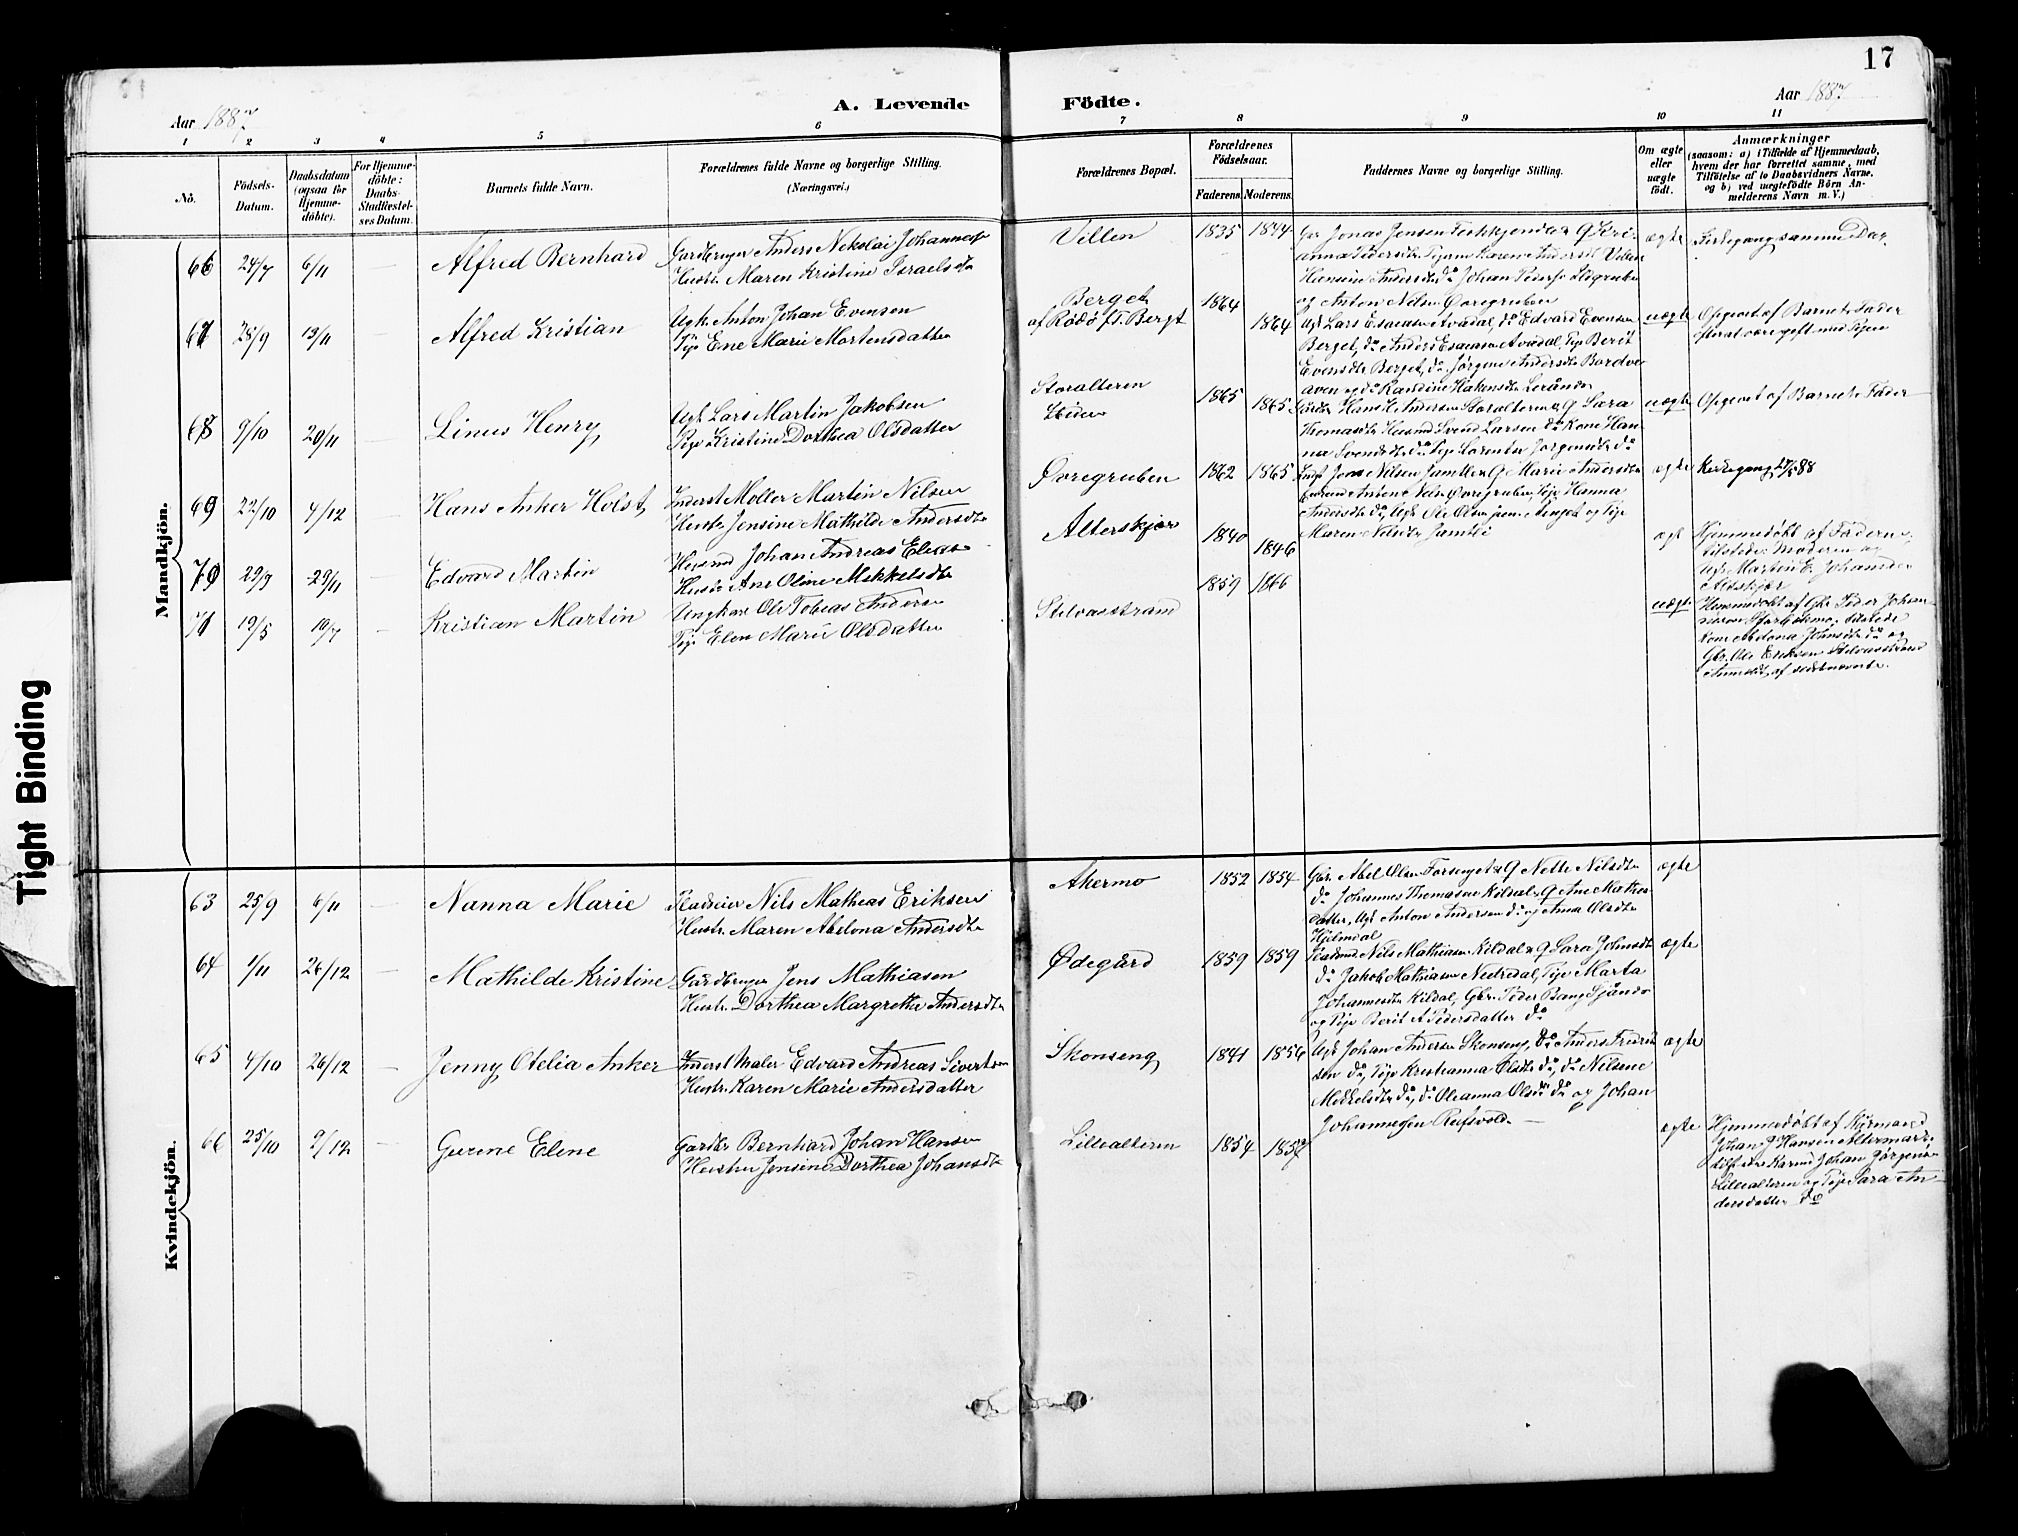 17
Aar 1887
A. Levende Födte.
Aar 1887
1 2 3 4 5 6 7 8 9 10 11
Nô.
Födsels-
Datum.
Daabsdatum
(ogsaa for
Hjemme-
döbte).
For Hjemme-
döbte:
Daabs-
Stadfæstel-
ses Datum.
Barnets fulde Navn.
Forældrenes fulde Navne og borgerlige Stilling.
(Næringsvei.)
Forældrenes Bopæl.
Forældrenes
Födselsaar.
Faderens.
Moderens.
Faddernes Navne og borgerlige Stilling.
Om ægte
eller
uægte
födt.
Anmærkninger
(saasom: a) i Tilfælde af Hjemmedaab,
hvem der har forrettet samme, med
Tilföielse af to Daabsvidners Navne,
og b) ved uægtefödte Börn An-
melderens Navn m. V.)
Mandkjön.
66 24/7 6/11 — Alfred Bernhard
Gardbruger Anders Nikolai Johannes
Hustr. Maren Kristine Israelsdtr
Villen 1835 1844
Gbr Jonas Jensen
Hansine Andersdtr do Johan Peders
og Anton Nilsen Øvregruben
ægte Kirkegang samme Dag
67 28/9 13/11 Alfred Kristian
Ugk. Anton Johan Evensen
Pige Ene Marie Mortensdatter
Berget
af Rödö ft. Bergt
1864 1864
Ugk Lars Esaiasen Avadal, do Edvard Evensen
Berget, do Anders Esaiasen Avadal, Pige Berit
Evensdtr Berget, do Jörgine Andersdtr
og do Randine Hakensdtr
uægte Opgivet af Barnets Fader
68 9/10 20/11 — Linus Henry
Ugk Lars Martin Jakobsen
Pige Kristine Dorthea Olsdatter
Storalteren
1865 1865
Hans H. Andersen Storalteren & G Sara
Thomasdtr Husmd Svend Larsen do Kone Han-
na Svendsdtr do Pige Lorentse Jörgensdtr do
uægte Opgivet af Barnets Fader
69 22/10 4/12 Hans Anker Holst
Inderst Möller Martin Nilsen
Hustr Jensine Mathilde Andersdtr
Øvregruben 1862 1865
Jens Nilsen Jamtli & G Marie Andersdtr
Anton Nilsen Øvregruben, Pige Hanna
Andersdtr do, Ugk Ole Olsen
Maren Nilsdtr Jamtli
ægte Kirkegang 88
70 29/9 29/11 — Edvard Martin
Husmd Johan Andreas Elias
Hustr Ane Oline Mikkelsdtr
Alterskjær 1840 1846
ægt Hjemmedøbt af Faderen,
tilstede: Moderen og
Ugk Martin E. Johansen
Alterskjær
71 19/5 10/7 — Kristian Martin
Ungkar Ole Tobias Anders
Pige Elen Marie Olsdatter
Stilvasstrand 1859 1866
uægte Hjemmedøbt af Gbr. Peder Johan-
tilstede
Kone Abelona Johnsdtr do og
Gbr. Ole Eriksen Stilvasstrand
Anmeldt af sidstnævnte.
Kvindekjön.
63 25/9 6/11 — Nanna Marie
Nils Mathias Eriksen
Hustr. Maren Abelona Andersdtr
Akermo 1852 1854
Gbr. Abel Olsen Forsenget & G Nette Nilsdtr
do Johannes Thomasen Kildal & G Ane Mathea
datter, Ugk Anton Andersen do og Anna Olsdtr
Hjelmdal
ægte
64 1/11 26/12 — Mathilde Kristine
Gardbruger Jens Mathiasen
Hustr. Dorthea Margrethe Andersdtr
Ødegård 1859 1859
Nils Mathiasen Kildal & G Sara Johnsdtr
do Jakob Mathiasen Nedredal, Pige Marta
Johannesdtr Kildal, Gbr. Peder Bang Sjånes
og Pige Berit A Pedersdatter do
ægte
65 4/10 26/12 — Jenny Otelia Anker
Inderst Maler Edvard Andreas Sivertsen
Hustr. Karen Marie Andersdatter
Skonseng 1841 1856
Ugk Johan Andersen Skonseng, do Anders Fredrik-
sen do, Pige Kristianna Olsdtr do, do Nilsine
Mikkelsdtr do, do Oleanna Olsdtr do og Johan
Johannesen Refsvold. —
ægte
66 25/10 2/12 — Gurine Elene
Gardbr Bernhard Johan Hansen
Hustru Jensine Dorthea Johansdtr
Lillealteren 1854 1857
ægte Hjemmedøbt af Styrmand
Johan J Hansen Altermark,
tilstede Johan Jörgensen
Lillealteren og Pige Sara An-
dersdatter do
Tight Binding